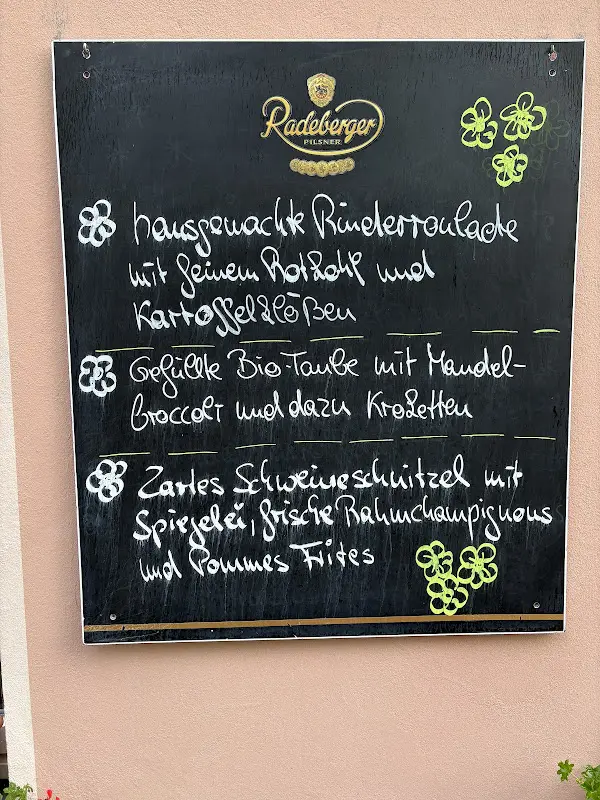 Radeberger
PILSNER
hausgemachte Rinderroulade
mit feinem Rotkohl und
Kartoffelklößen
Gefüllte Bio-Taube mit Mandel-
broccoli und dazu Kroketten
Zartes Schweineschnitzel mit
Spiegelei, frische Rahmchampignons
und Pommes Frites